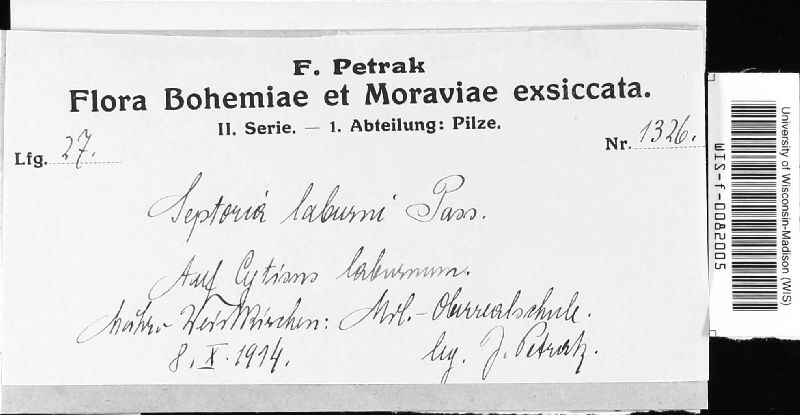 F. Petrak
Flora Bohemiae et Moraviae exsiccata.
II. Serie. — 1. Abteilung: Pilze.
Lfg. 27.
Nr. 1326.
Septoria laburni Pass.
Auf Cytisus laburnum.
Mähr. Weisskirchen: Mil.-Oberrealschule.
8. X. 1914.
leg. J. Petrak.
University of Wisconsin-Madison (WIS)
WIS-f-0082005